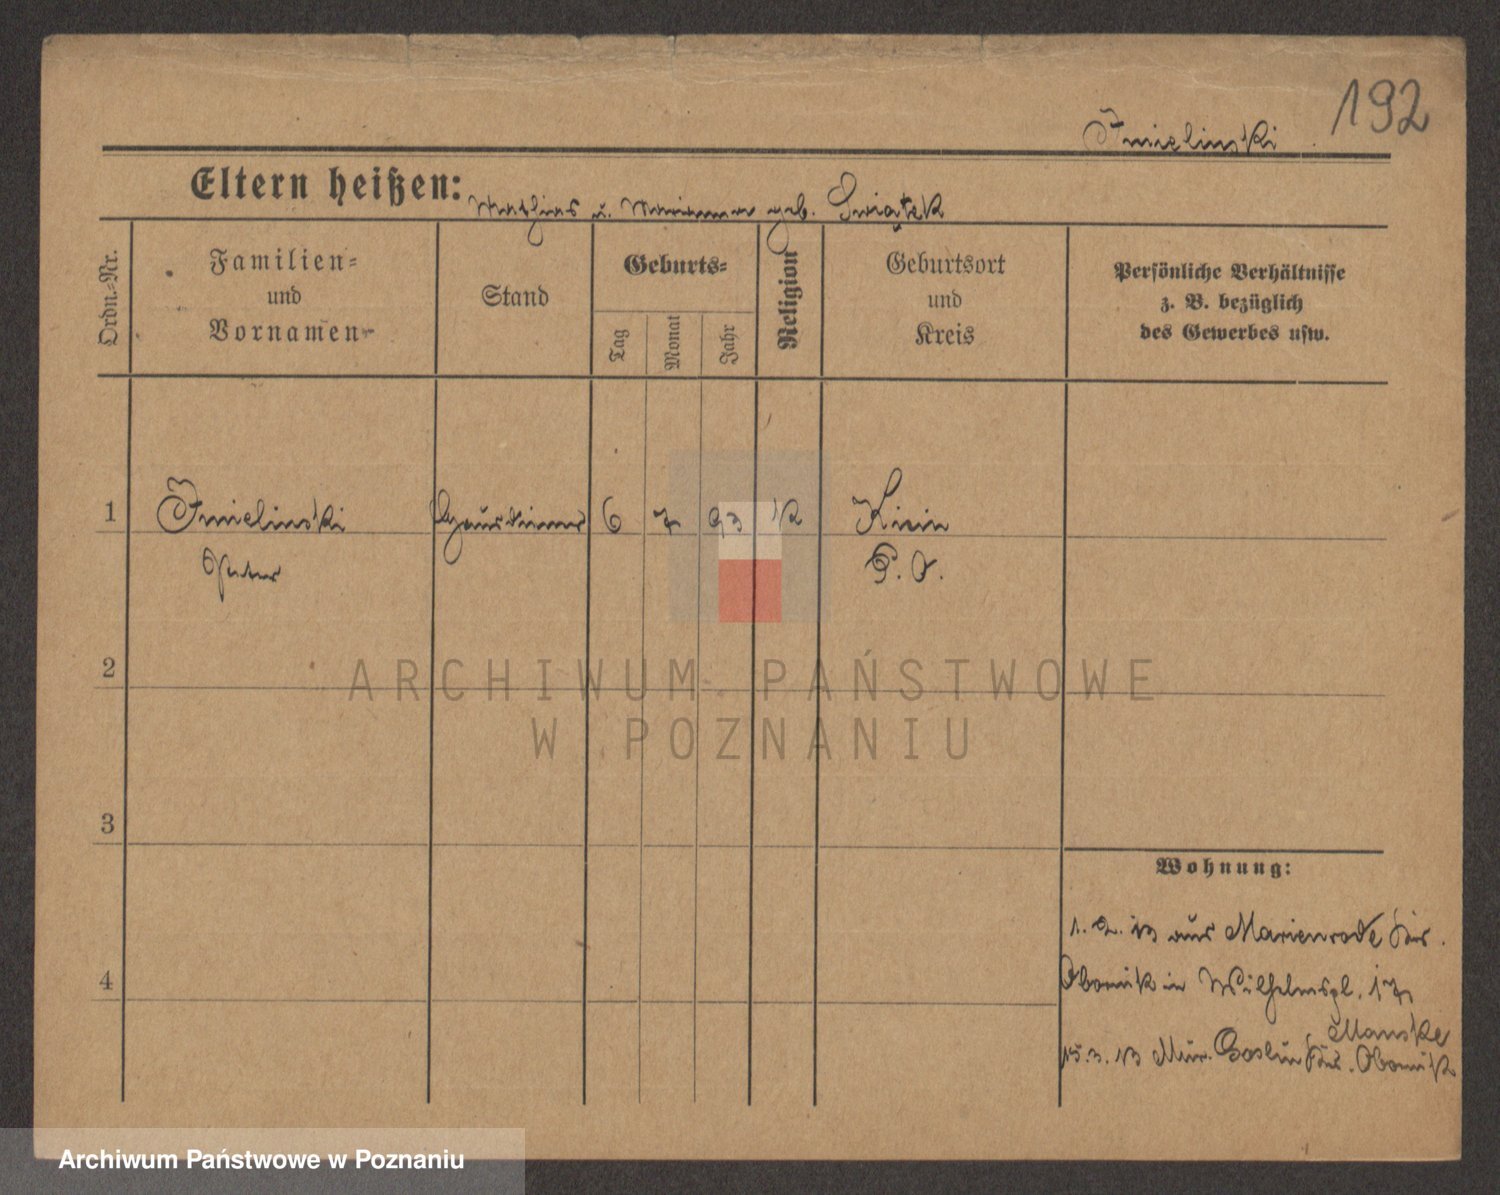 192
Imielinski
Eltern heißen: Mathias u. Marianna geb. Świątek
Ordn.-Nr.
Familien-
und
Vornamen-
Stand
Geburts-
Tag
Monat
Jahr
Religion
Geburtsort
und
Kreis
Persönliche Verhältnisse
z. B. bezüglich
des Gewerbes usw.
1 Imielinski Hausdiener 6 7 93 K Kicin
Peter P. O.
2
ARCHIWUM PAŃSTWOWE
W POZNANIU
3
Wohnung:
1. 2. 13 aus Marienrode Krs.
4
Obornik in Wilhelmspl. 17
Manske
15. 3. 13 Mur. Goslin Krs. Obornik
Archiwum Państwowe w Poznaniu